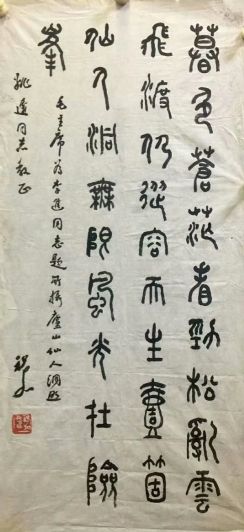 暮色蒼茫看勁松亂雲
飛渡仍從容天生壹箇
仙人洞無限風光在險
峯
毛主席为李進同志題所攝廬山仙人洞照
同志教正